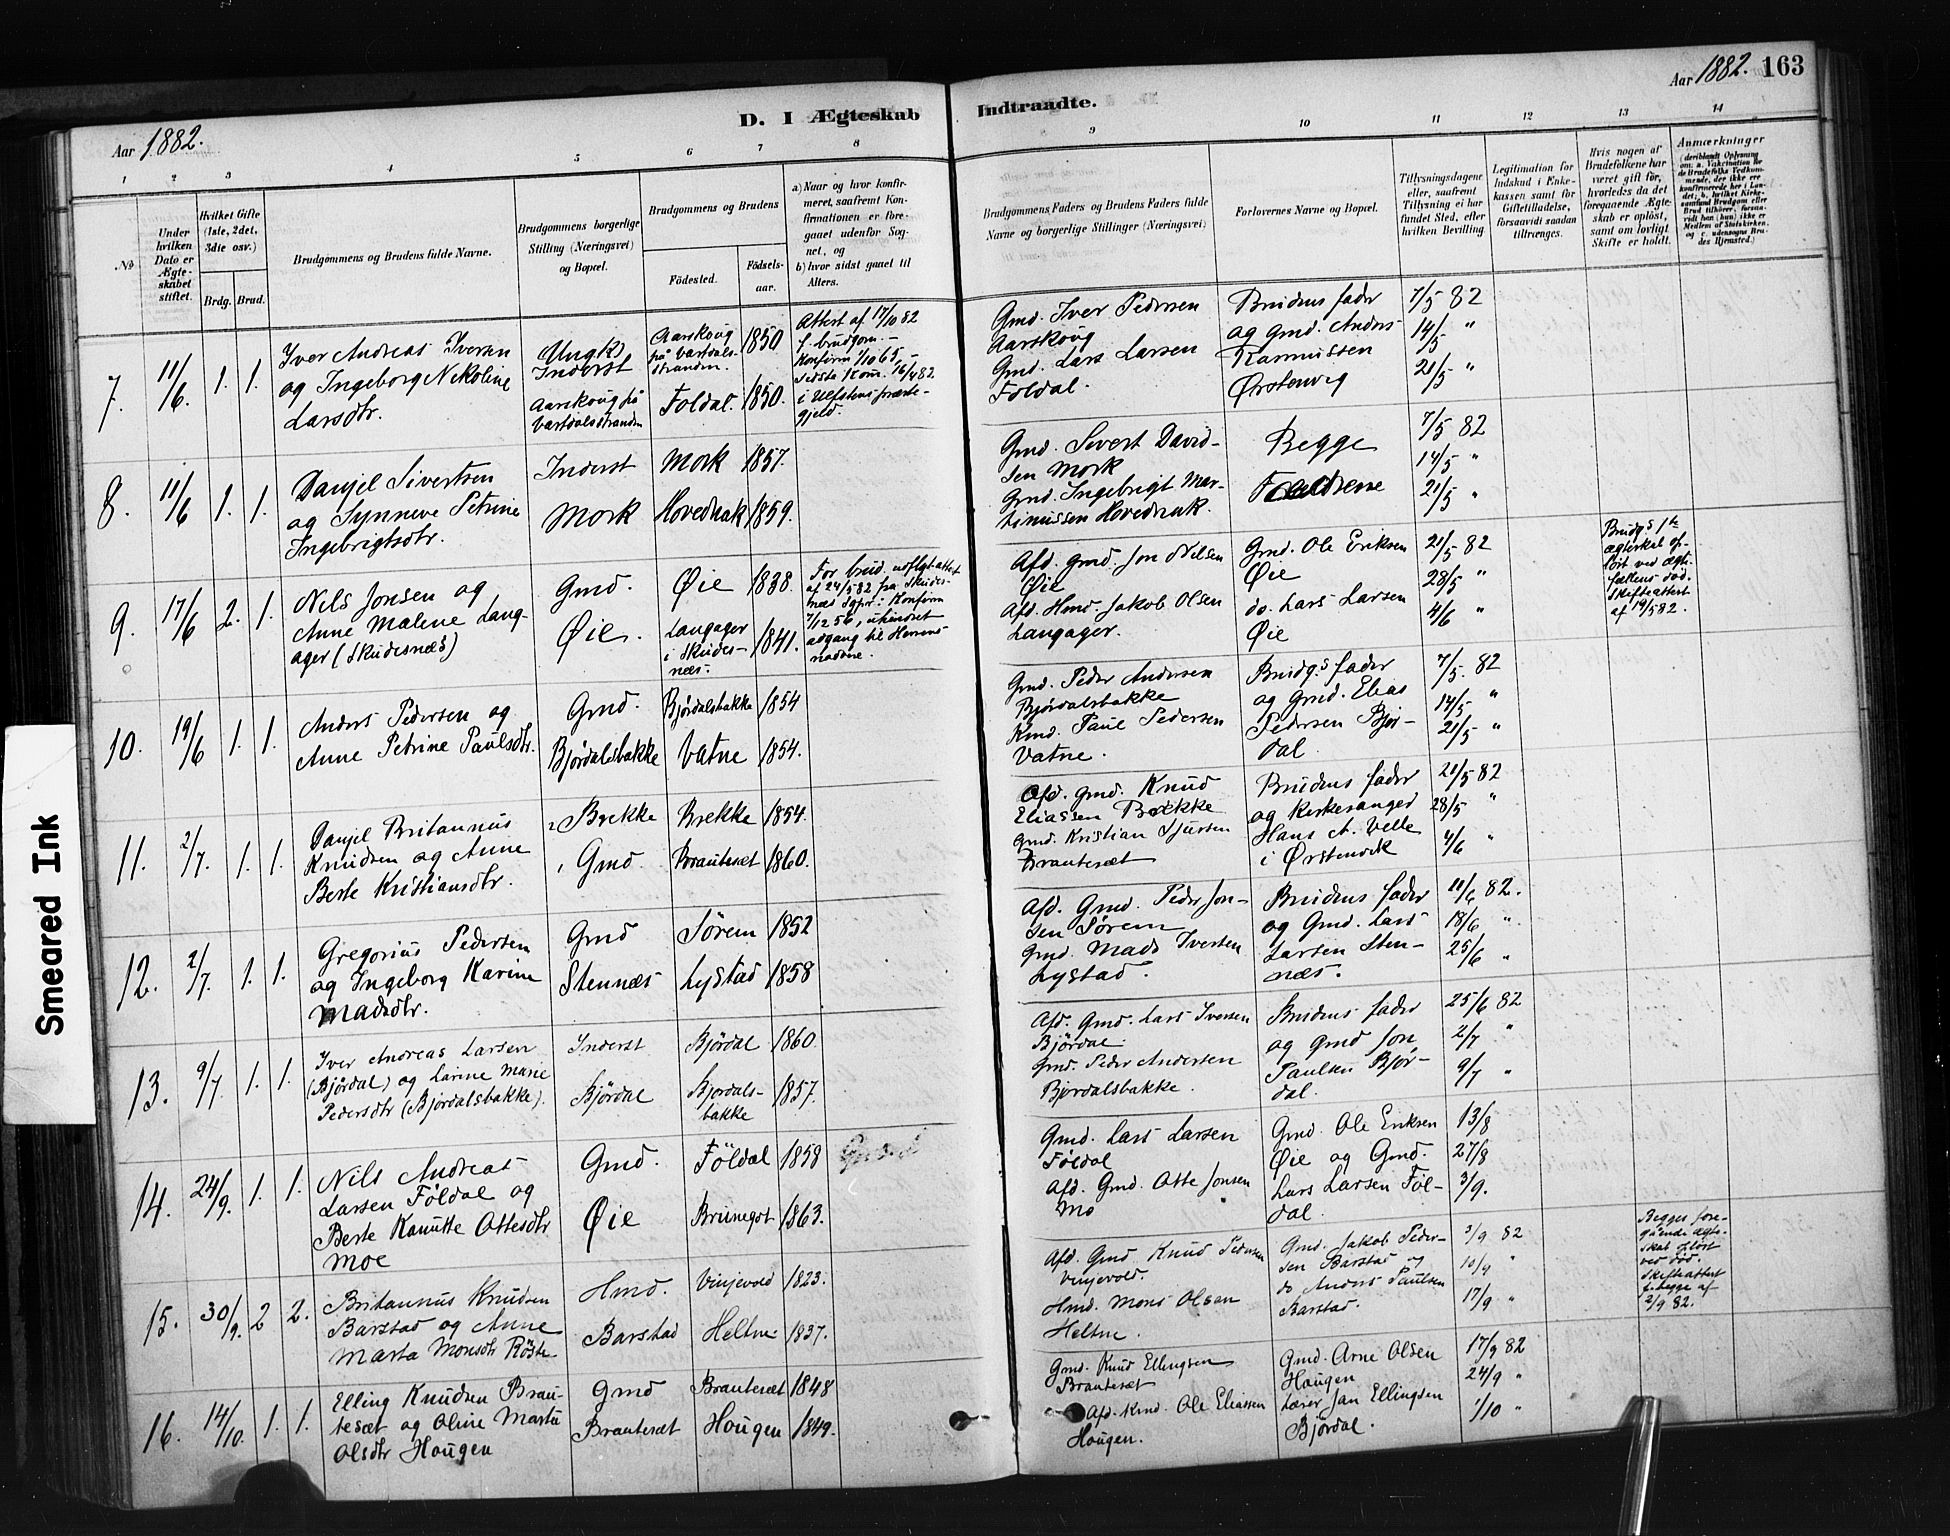 Aar 1882.
D. I Ægteskab
Indtraadte.
Aar 1882. 163
1 2 3 4 5 6 7 8
9 10 11 12 13 14
No
Under hvilken Dato er Ægteskabet stiftet.
Hvilket Gifte (1ste, 2det, 3die osv.)
Brdg. Brud.
Brudgommens og Brudens fulde Navne.
Brudgommens borgerlige Stilling (Næringsvei) og Bopæl.
Brudgommens og Brudens
Födested. Födsels-aar.
a) Naar og hvor konfirmeret, saafremt Konfirmationen er foregaaet udenfor Sognet, og
b) hvor sidst gaaet til Alters.
Brudgommens Faders og Brudens Faders fulde Navne og borgerlige Stillinger (Næringsvei)
Forlovernes Navne og Bopæl.
Tillysningsdagene eller, saafremt Tillysning ei har fundet Sted, efter hvilken Bevilling.
Legitimation for Indskud i Enkekassen samt for Giftetilladelse, forsaavidt saadan tiltrænges.
Hvis nogen af Brudefolkene har været gift för, hvorledes da det foregaaende Ægteskab er oplöst, samt om lovligt Skifte er holdt.
Anmærkninger
7. 11/6. 1. 1.
Iver Andreas Iversen
og Ingeborg Nikoline
Larsdtr.
Ungk.
Inderst
Aarskoug på
Vartdalsstranden
Aarskoug
på Vartdals-
stranden. 1850
Foldal. 1850.
Attest af 17/10 82
f. brudgom. -
Konfirm 1/10 65, -
sidste Kom. 16/4 82
i Ulfstens præste-
gjeld.
Gmd. Iver Pedersen
Aarskoug
Gmd. Lars Larsen
Foldal.
Brudens fader
og Gmd. Anders
Rasmussen
Ørstenvig
7/5 82
14/5 "
21/5 "
8. 11/6 1. 1.
Danjel Sivertsen
og Synneve Petrine
Ingebrigtsdtr.
Inderst
Mork
Mork 1857.
Hovednak 1859.
Gmd. Sivert David-
sen Mork
Gmd. Ingebrigt Mar-
tinussen Hovednak.
Begge
Fædrene
7/5 82
14/5 "
21/5 "
9. 17/6 2. 1.
Nils Jonsen og
Anne Malene Lang-
ager (Skudesnæs)
Gmd.
Øie.
Øie 1838.
Langager
i Skudes-
næs. 1841.
For brud. udflgt.attest
af 24/5 82 fra Skudes-
næs Sgpr.: Konfirm
7/12 56, uhindret
adgang til Herrens
nadvere.
Afd. Gmd. Jon Nilsen
Øie
Afd. Hmd. Jakob Olsen
Langager.
Gmd. Ole Eriksen
Øie
do. Lars Larsen
Øie
21/5 82
28/5 "
4/6 "
Brudgs 1te
ægteskab op-
löst ved ægte-
fællens död.
Skifteattest
af 19/5 82.
10. 19/6 1. 1.
Anders Pedersen og
Anne Petrine Paulsdtr.
Gmd.
Bjørdalsbakke
Bjørdalsbakke 1854
Vatne 1854.
Gmd. Peder Andersen
Bjørdalsbakke
Kmd. Paul Pedersen
Vatne.
Brudgs fader
og Gmd. Elias
Pedersen Bjør-
dal.
7/5. 82
14/5 "
21/5 "
11. 2/7. 1. 1.
Danjel Britannus
Knudsen og Anne
Berte Kristiansdtr.
Brekke
Gmd
Brekke 1854.
Brautesæt 1860.
Afd. Gmd. Knud
Eliassen Brekke
Gmd. Kristian Sjursen
Brautesæt
Brudens fader
og Kirkesanger
Hans A. Velle
i Ørstenvik
21/5 82
28/5 "
4/6 "
12. 2/7. 1. 1.
Gregorius Pedersen
og Ingeborg Karine
Madsdtr.
Gmd
Stennæs
Sørem 1852
Lystad 1858
Afd. Gmd. Peder Jon-
sen Sørem
Gmd. Mads Iversen
Lystad.
Brudens fader
og Gmd. Lars
Larsen Sten-
næs.
11/6 82.
18/6 "
25/6 "
13. 9/7. 1. 1.
Iver Andreas Larsen
(Bjørdal) og Larine Marie
Pedersdtr (Bjørdalsbakke).
Inderst
Bjørdal
Bjørdal 1860.
Bjørdals-
bakke 1857.
Afd. Gmd. Lars Iversen
Bjørdal
Gmd. Peder Andersen
Bjørdalsbakke.
Brudens fader
og Gmd Jon
Paulsen Bjør-
dal.
25/6 82
2/7 "
9/7 "
14. 24/9. 1. 1.
Nils Andreas
Larsen Földal og
Berte Kanutte Ottesdtr
Moe
Gmd.
Øie
Földal 1858
Brunegot 1863.
Gmd. Lars Larsen
Földal
Afd. Gmd. Otte Jonsen
Mo
Gmd. Ole Eriksen
Øie og Gmd.
Lars Larsen Föl-
dal.
13/8
27/8
3/9.
15. 30/9. 2 2.
Britannus Knudsen
Barstad og Anne
Marta Monsdtr Röste
Hmd.
Barstad
Vinjevold 1823.
Heltne 1837.
Afd. Gmd Knud Pedersen
Vinjevold.
Hmd. Mons Olsen
Heltne.
Gmd. Jakob Peder-
sen Barstad og
do Anders Paulsen
Barstad.
3/9 82
10/9 "
17/9 "
Begges fore-
gående ægte-
skab opløst
ved död.
Skifteattest
f. begge af
2/9 82.
16. 14/10. 1. 1.
Elling Knudsen Brau-
tesæt og Oline Marta
Olsdtr Hougen
Gmd
Brautesæt
Brautesæt 1848
Hougen 1849.
Gmd. Knud Ellingsen
Brautesæt
Afd. Kmd. Ole Eliassen
Hougen.
Gmd. Arne Olsen
Hougen
Lærer Jan Ellingsen
Bjørdal.
17/9 82
24/9 "
1/10 "
Smeared Ink